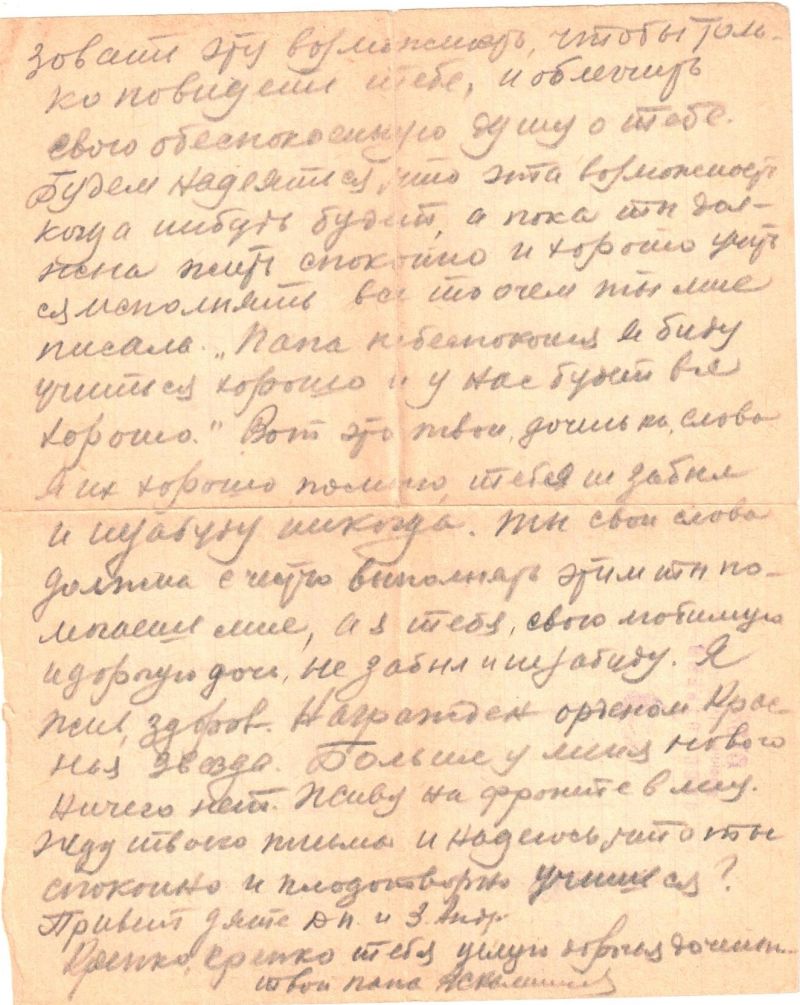 зовать эту возможность, чтобы толь-
ко повидеть тебе, и облегчить
свою обеспокоенную душу о тебе.
Будем надеятися, что эта возможность
когда нибудь будет, а пока ты дол-
жна жить спокойно и хорошо учить
ся исполнять все то очем ты мне
писала. „Папа небеспокойся Я буду
учиться хорошо и у нас будет вся
хорошо." Вот это твои, дочинька, слова
Я их хорошо помню, тебя не забыл
и незабуду никогда. Ты свои слова
должна счестью выполнять этим ты по-
могаеш мне, а я тебя, свою любимую
и дорогую дочь, не забыл и незабуду. Я
жив, здоров. Награжден орденом Крас-
ная звезда. Больше у меня нового
ничего нет. Живу на фронте в лесу.
Жду твоего письма и надеюсь, что ты
спокойно и плодотворно учишся?
Привет дяте Дп. и З. Андр.
Крепко, крепко тебя целую дорогая доченька
твой папа